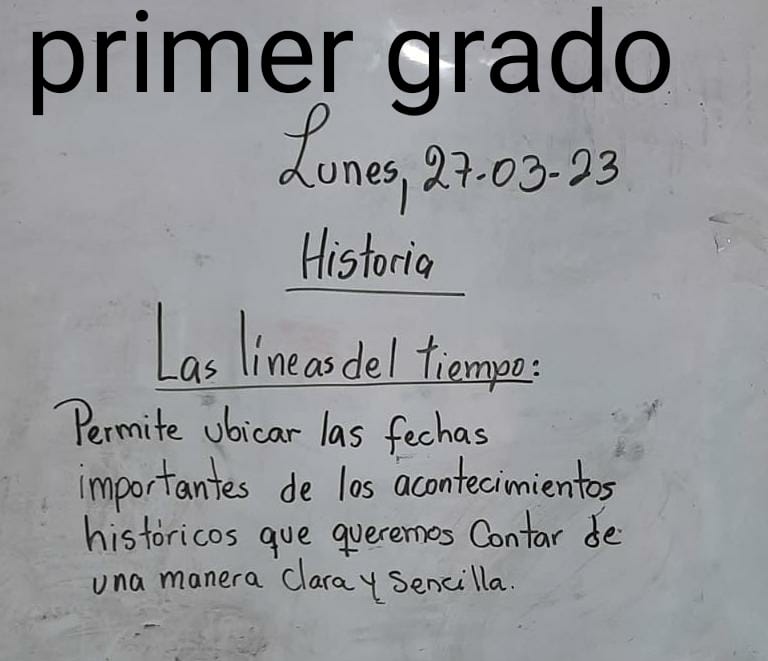 primer grado
Lunes, 27-03-23
Historia
Las líneas del tiempo:
Permite ubicar las fechas
importantes de los acontecimientos
históricos que queremos Contar de
una manera Clara y Sencilla.